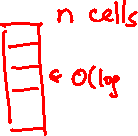 n cells
∈ O(log